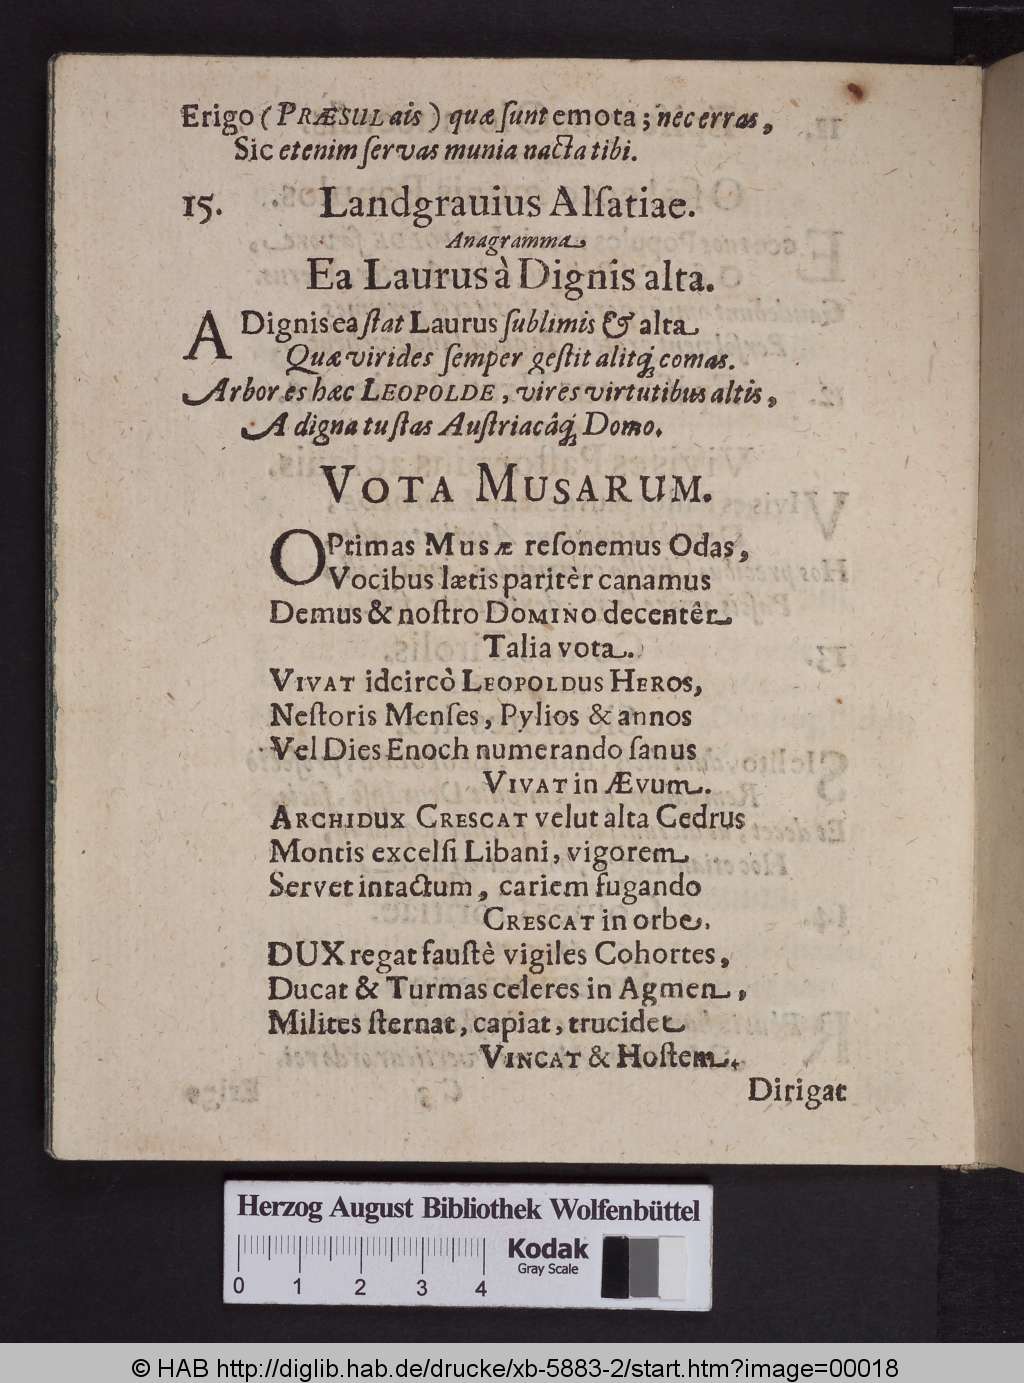 Erigo (PRÆSUL ais) quæ ſunt emota; nec erras,
Sic etenim ſervas munia nacta tibi.
15. Landgrauius Alſatiae.
Anagramma
Ea Laurus à Dignis alta.
A Dignis ea ſtat Laurus ſublimis & alta
Quæ virides ſemper geſtit alitq́; comas.
Arbor es hæc LEOPOLDE, vires virtutibus altis,
A digna tu ſtas Auſtriacâq́; Domo.
VOTA MUSARUM.
OPtimas Musæ reſonemus Odas,
Vocibus lætis paritèr canamus
Demus & noſtro DOMINO decentêr
Talia vota.
VIVAT idcircò LEOPOLDUS HEROS,
Neſtoris Menſes, Pylios & annos
Vel Dies Enoch numerando ſanus
VIVAT in Ævum.
ARCHIDUX CRESCAT velut alta Cedrus
Montis excelſi Libani, vigorem
Servet intactum, cariem fugando
CRESCAT in orbe.
DUX regat fauſtè vigiles Cohortes,
Ducat & Turmas celeres in Agmen,
Milites ſternat, capiat, trucidet
VINCAT & Hoſtem.
Dirigat
Herzog August Bibliothek Wolfenbüttel
0 1 2 3 4
Kodak
Gray Scale
© HAB http://diglib.hab.de/drucke/xb-5883-2/start.htm?image=00018